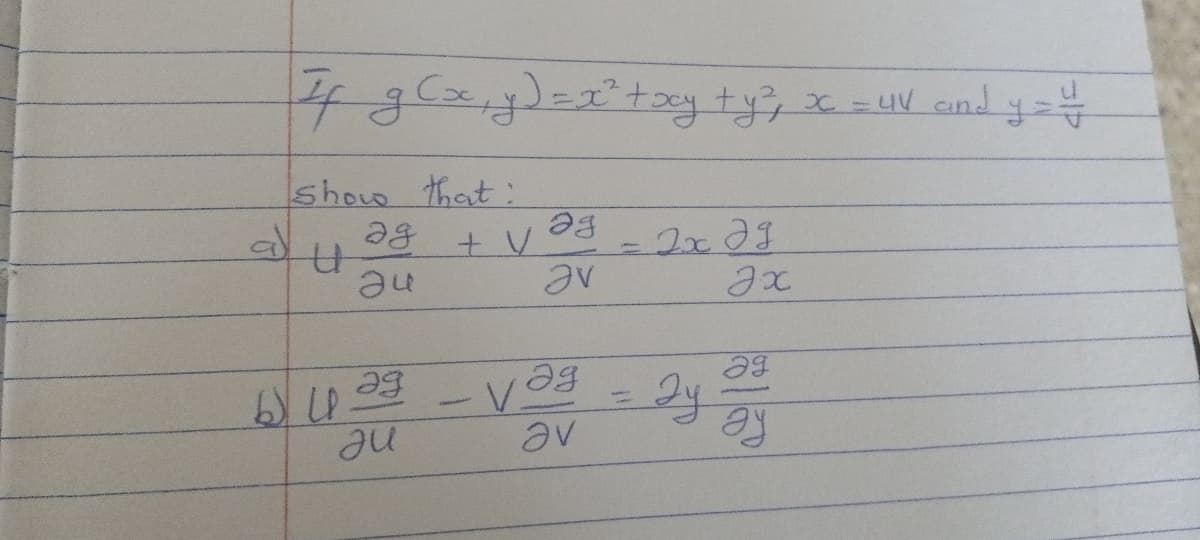 If g(x,y)=x²+xy+y², x=uv and y=u/v
Show that:
a) u ∂g/∂u + v ∂g/∂v = 2x ∂g/∂x
b) u ∂g/∂u - v ∂g/∂v = 2y ∂g/∂y